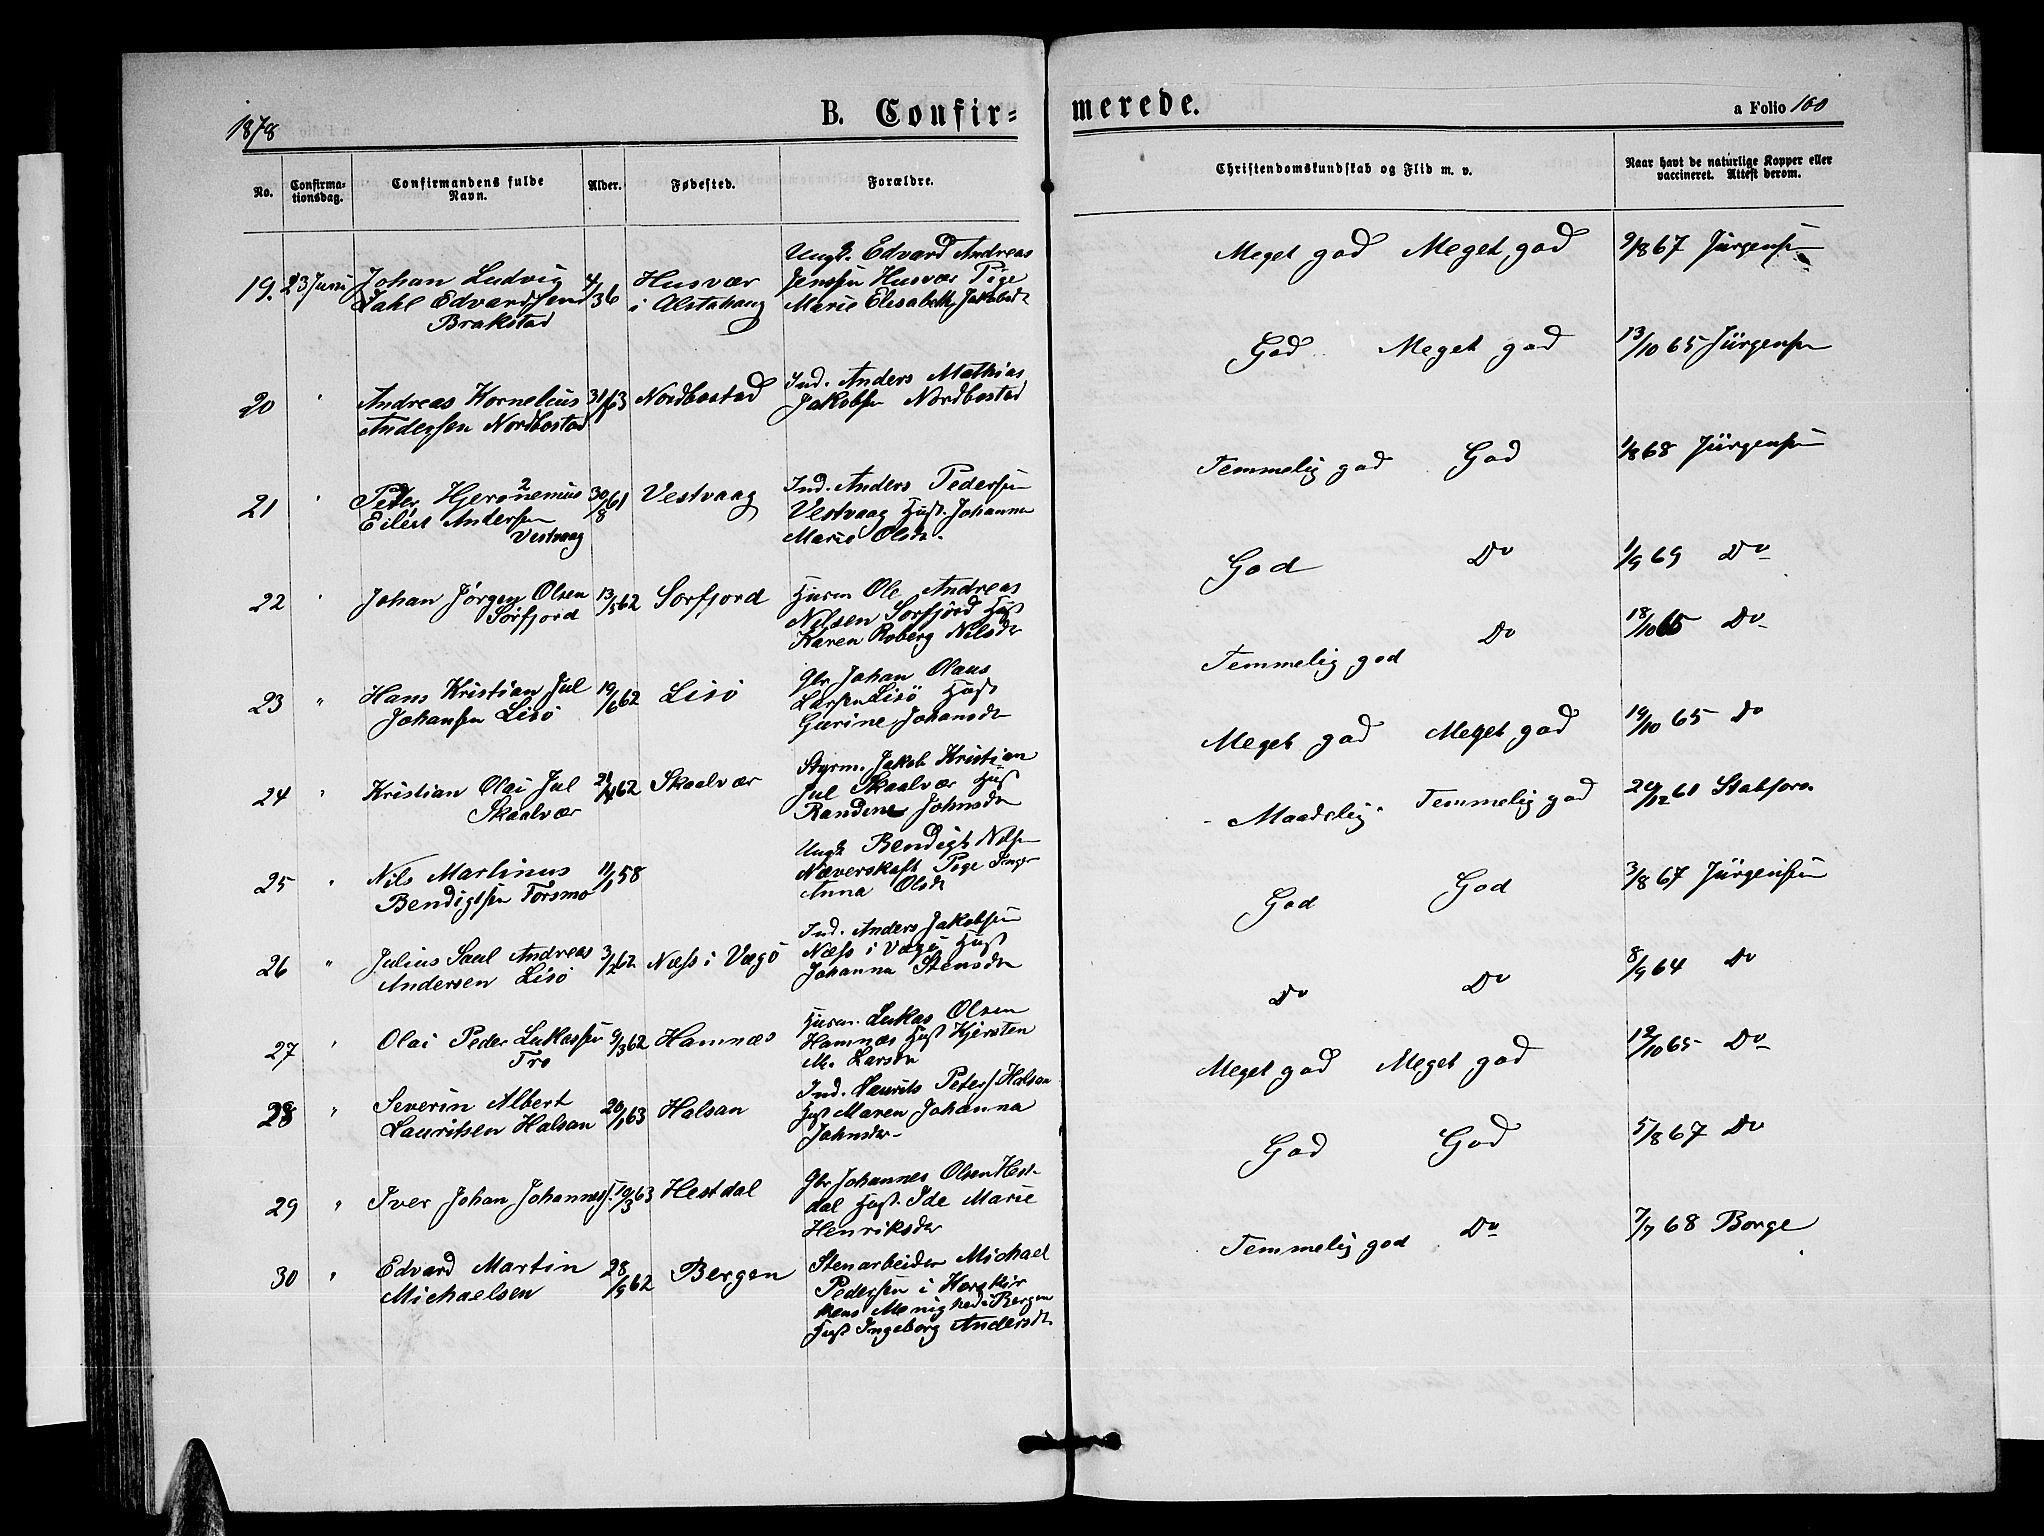 1878
B. Confir=
merede.
a Folio 100
No.
Confirma-
tionsdag.
Confirmandens fulde
Navn.
Alder.
Fødested.
Forældre.
Christendomskundskab og Flid m. v.
Naar havt de naturlige Kopper eller
vaccineret. Attest derom.
19. 23 Juni Johan Ludvig Husvær Ungk. Edvard Andreas
Dahl Edvardsen i Alstahaug Jenssen Husvær Pige
Brakstad Marie Elisabeth Jakobsdr
Meget god Meget god 9/8 67 Jürgensen
20 " Andreas Kornelius 31/ 63 Nordbostad Ind. Anders Mathias
Andersen Nordbostad Jakobsen Nordbostad
God Meget god 13/10 65 Jürgensen
21 " Peder Hjeronemus 30/8 61 Vestvaag Ind. Anders Pedersen
Eilert Andersen Vestvaag Hust. Johanna
Vestvaag Marie Olsdr.
Temmelig god God 1/8 68 Jürgensen
22 " Johan Jørgen Olsen 13/5 62 Sørfjord Husm Ole Andreas
Sørfjord Nilsen Sørfjord Hust
Karen Roberg Nilsdr
God Do 1/9 69 Do
23 " Hans Kristian Jul 19/6 62 Lisö Gbr Johan Olaus
Johansen Lisö Larsen Lisö Hust
Gurine Johansdr
Temmelig god Do 18/10 65 Do
24 " Kristian Olai Jul 21/4 62 Skaalvær Styrm. Jakob Kristian
Skaalvær Jul Skaalvær Hust
Randine Johnsdr
Meget god Meget god 19/10 65 Do
25 " Nils Martinus 11/1 58 Ungk Bendigt Nilsen
Bendigtsen Forsmo Næverskaft Pige Inger
Anna Olsdr
Maadelig Temmelig god 29/12 61 Stabfors.
26 " Julius Saul Andreas 3/2 62 Næss i Vægö Ind. Anders Jakobsen
Andersen Lisö Næss i Vægö Hust
Johanna Stensdr
God God 3/8 67 Jürgensen
27 " Olai Peder Lukassen 9/3 62 Hamnæs Husm. Lukas Olsen
Tro Hamnæs Hust Kjersten
M. Larsdr
Do Do 8/9 64 Do
28 " Severin Albert 20/1 63 Halsan Ind. Laurits Peters. Halsan
Lauritsen Halsan Hust Maren Johanna
Johnsdr
Meget god Meget god 12/10 65 Do
29 " Iver Johan Johannes. 19/3 63 Hestdal Gbr Johannes Olsen Hest-
dal Hust. Ide Marie
Henriksdr
God God 5/8 67 Do
30 " Edvard Martin 28/9 62 Bergen Stenarbeider Michael
Michaelsen Pedersen i Korskir
kens Menighed i Bergen
Hust Ingeborg Andersdr
Temmelig god Do 7/7 68 Borge